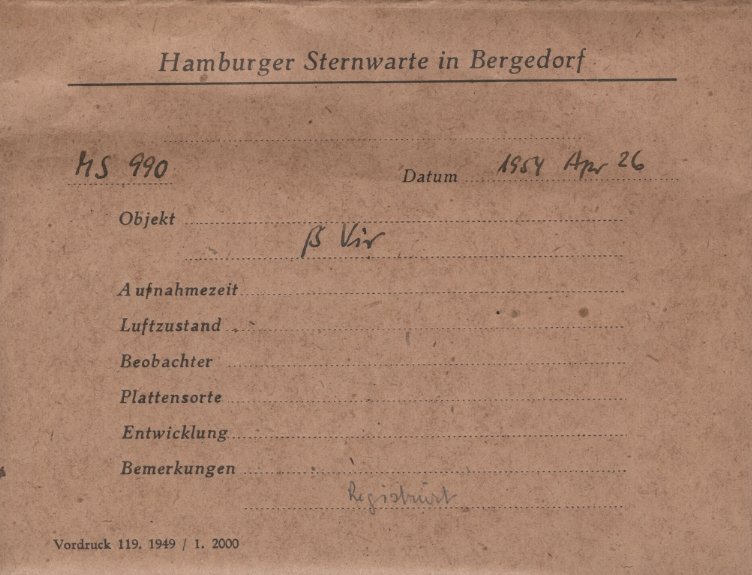 Hamburger Sternwarte in Bergedorf
MS 990 Datum 1954 Apr 26
Objekt
β Vir
Aufnahmezeit
Luftzustand
Beobachter
Plattensorte
Entwicklung
Bemerkungen
Registriert
Vordruck 119. 1949 / 1. 2000